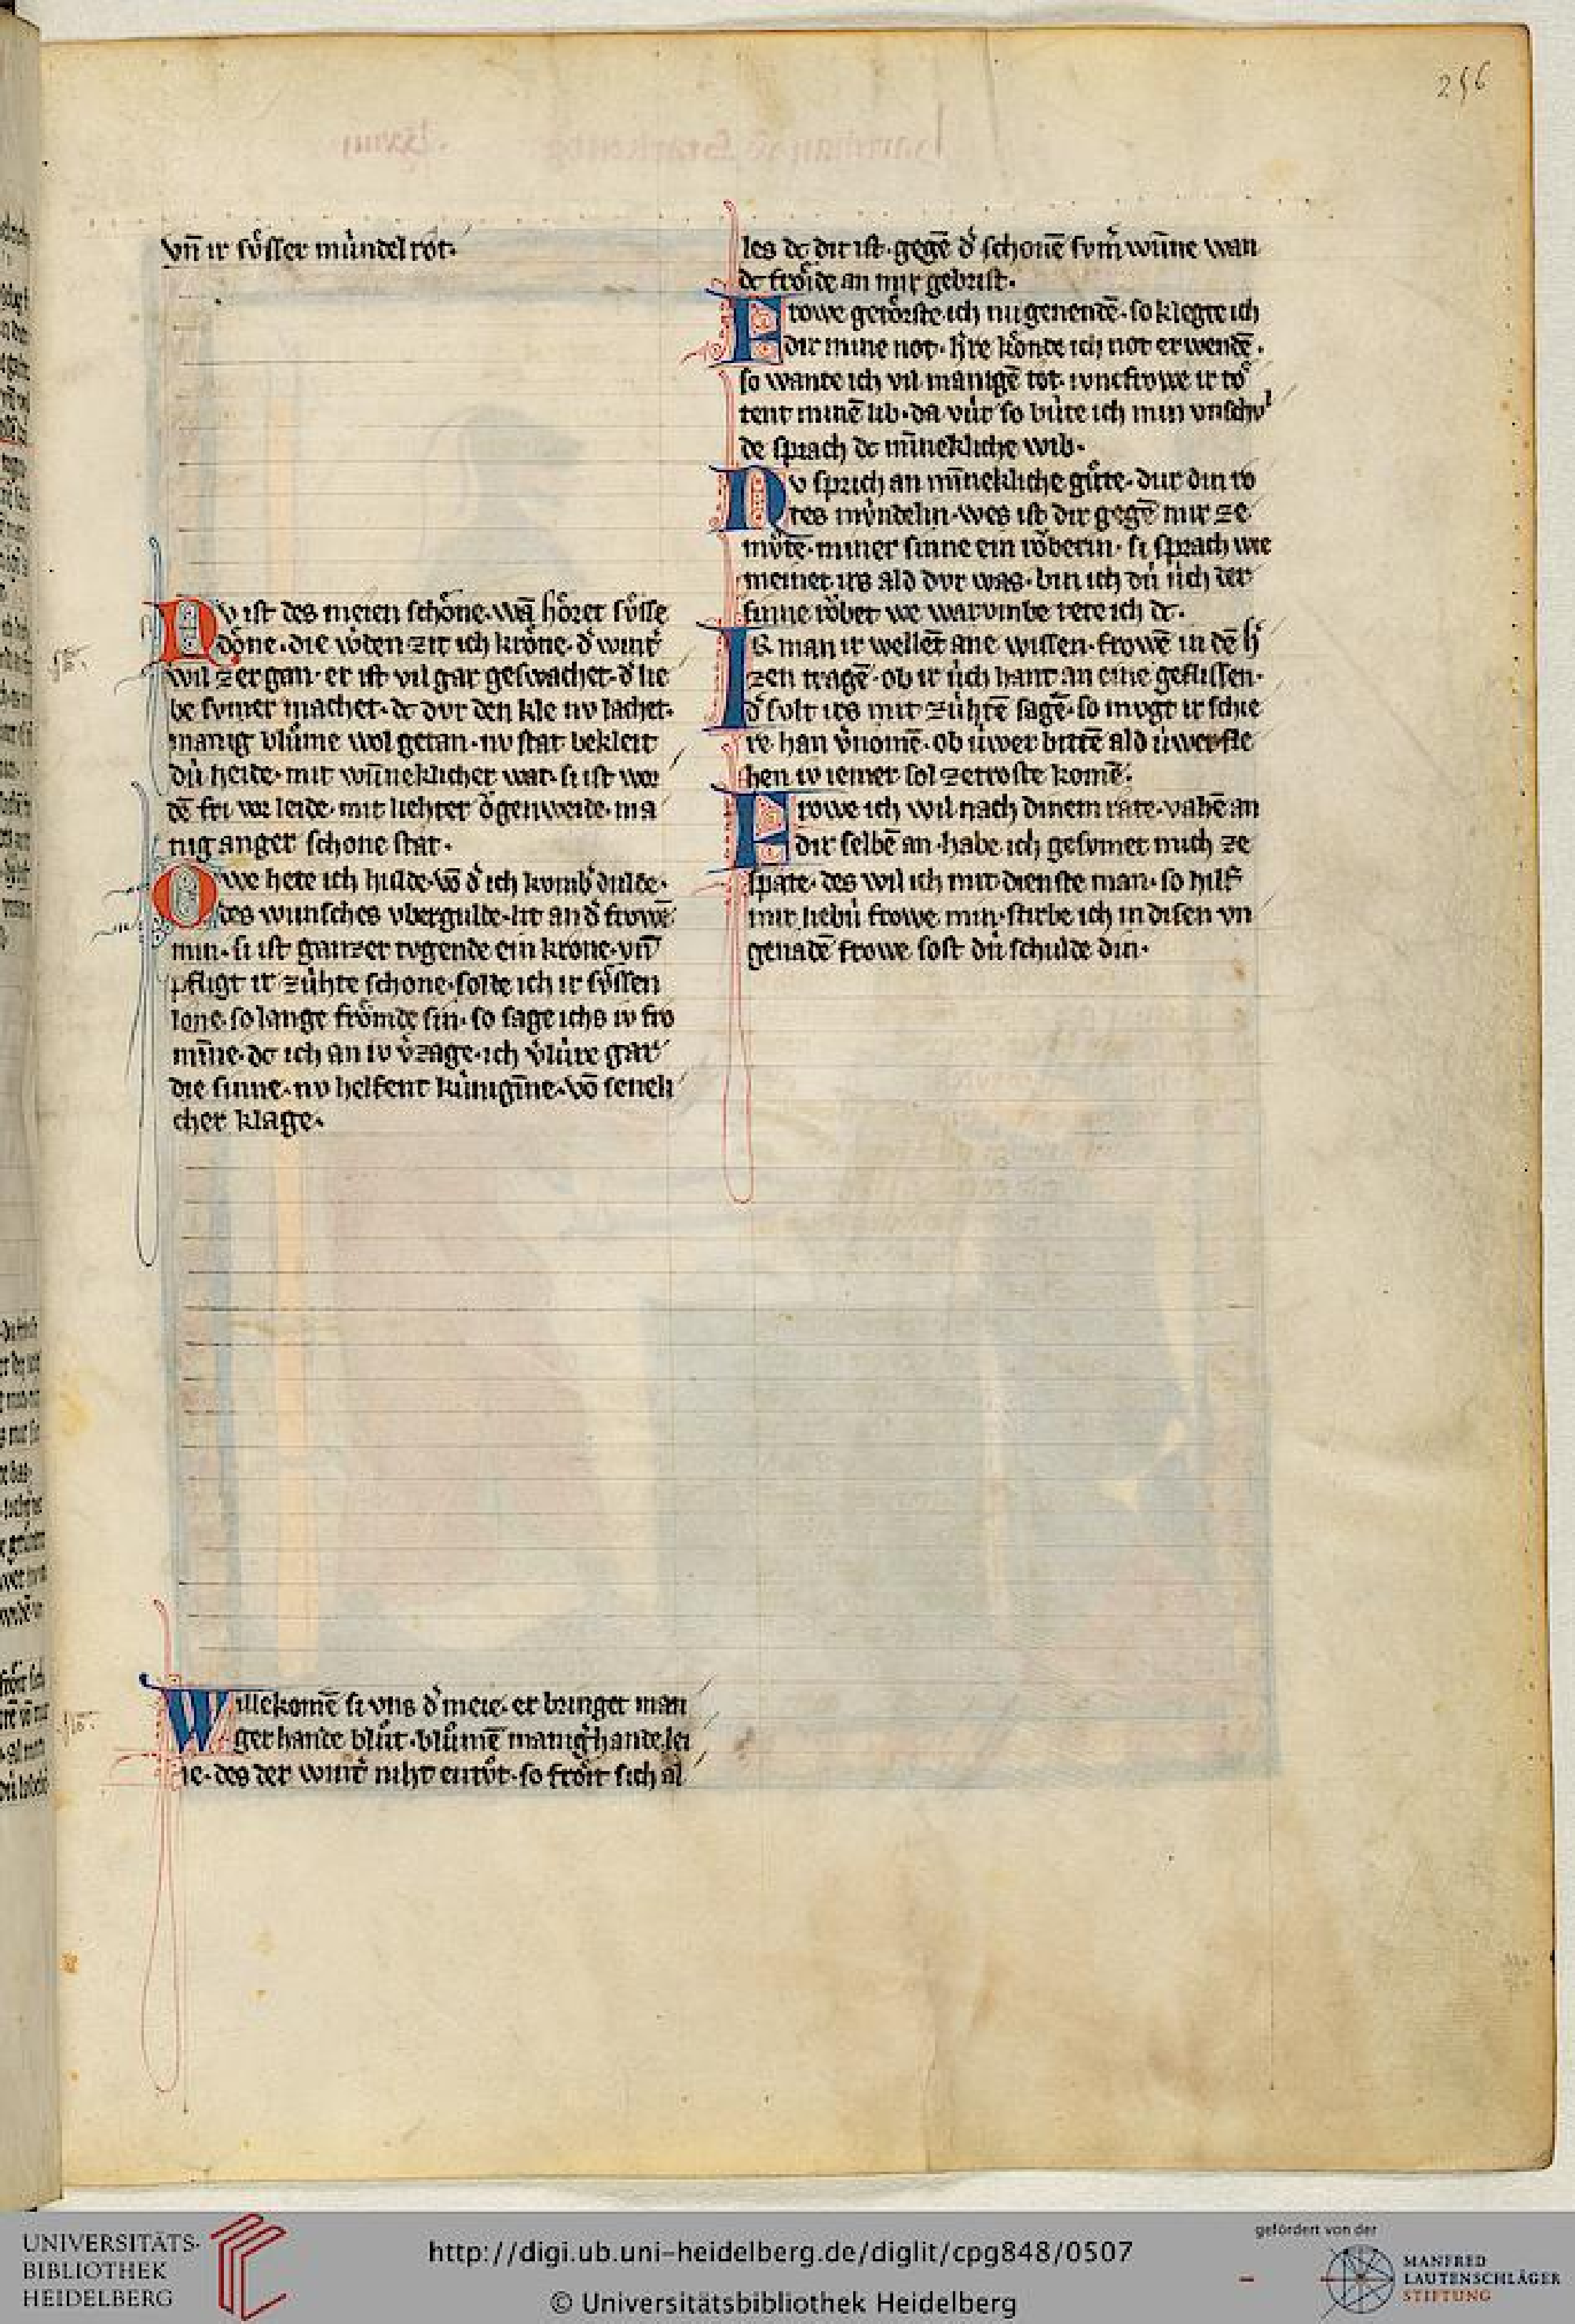 256
vn̄ ir sv̊sser mu̍ndel rot·
Nv ist des meien scho̍ne· wā ho̍ret sv̊sse
do̍ne· die werden zit ich kro̍ne· d͛ wint͛
wil zergan· er ist vil gar geswachet· d͛ lie
be svmer machet· dc dvr den kle nv lachet·
manig blůme wol getan· nv stat bekleit
dú heide· mit wūneklicher wat· si ist wor
dē fri vor leide· mit liehter o̍genweide· ma
nig anger schone stat·
Owe hete ich hulde· vō d͛ ich kumb͛ dulde·
des wunsches vbergulde· lit an d͛ frowē
min· si ist ganzer tvgende ein krone· vn̄
pfligt ir zúhte schone· solte ich ir sv̊ssen
lone· so lange fro̍mde sin· so sage ichs iv fro
mīne· dc ich an iv v͛zage· ich v͛lúre gar
die sinne· nv helfent kúnigīne· vō seneli
cher klage·
Willekomē si vns d͛ meie· er bringet man
ger hande blůt· blůmē manig͛ hande lei
ie· des der wint͛ niht entůt· so fro̍it sich al
les dc dir ist· gegē d͛ schonē svm͛ wūne wan
dc fro̍ide an mir gebrist·
Frowe geto̍rste ich nu genendē· so klegte ich
dir mine not· h͛re ko̍nde ich not erwendē·
so wante ich vil manigē tot· iuncfrowe ir to̍
tent minē lib· da vúr so búte ich min vnschvl
de sprach dc mīnekliche wib·
Nv sprich an mīnekliche gůte· dur din ro
tes mv́ndelin· wes ist dir gegē mir ze
mv̊te· miner sinne ein ro̍berin· si sprach wie
meinet irs ald dvr was· bin ich dú úch der
sinne ro̍bet we warvmbe tete ich dc·
Ir man ir wellet ane wissen· frowē in dē h͛
zen tragē· ob ir úch hant an eine geflissen·
d͛ svlt irs mit zúhtē sagē· so mvgt ir schie
re han v͛nomē· ob úwer bittē ald úwer fle
hen iv iemer sol ze troste komē·
Frowe ich wil nach dinem rate· vahē an
dir selbē an· habe ich gesvmet mich ze
spate· des wil ich mit dienste man· so hilf
mir liebú frowe min· stirbe ich in disen vn
genadē frowe sost dú schulde din·
UNIVERSITÄTS-
BIBLIOTHEK
HEIDELBERG
http://digi.ub.uni-heidelberg.de/diglit/cpg848/0507
© Universitätsbibliothek Heidelberg
gefördert von der
MANFRED
LAUTENSCHLÄGER
STIFTUNG